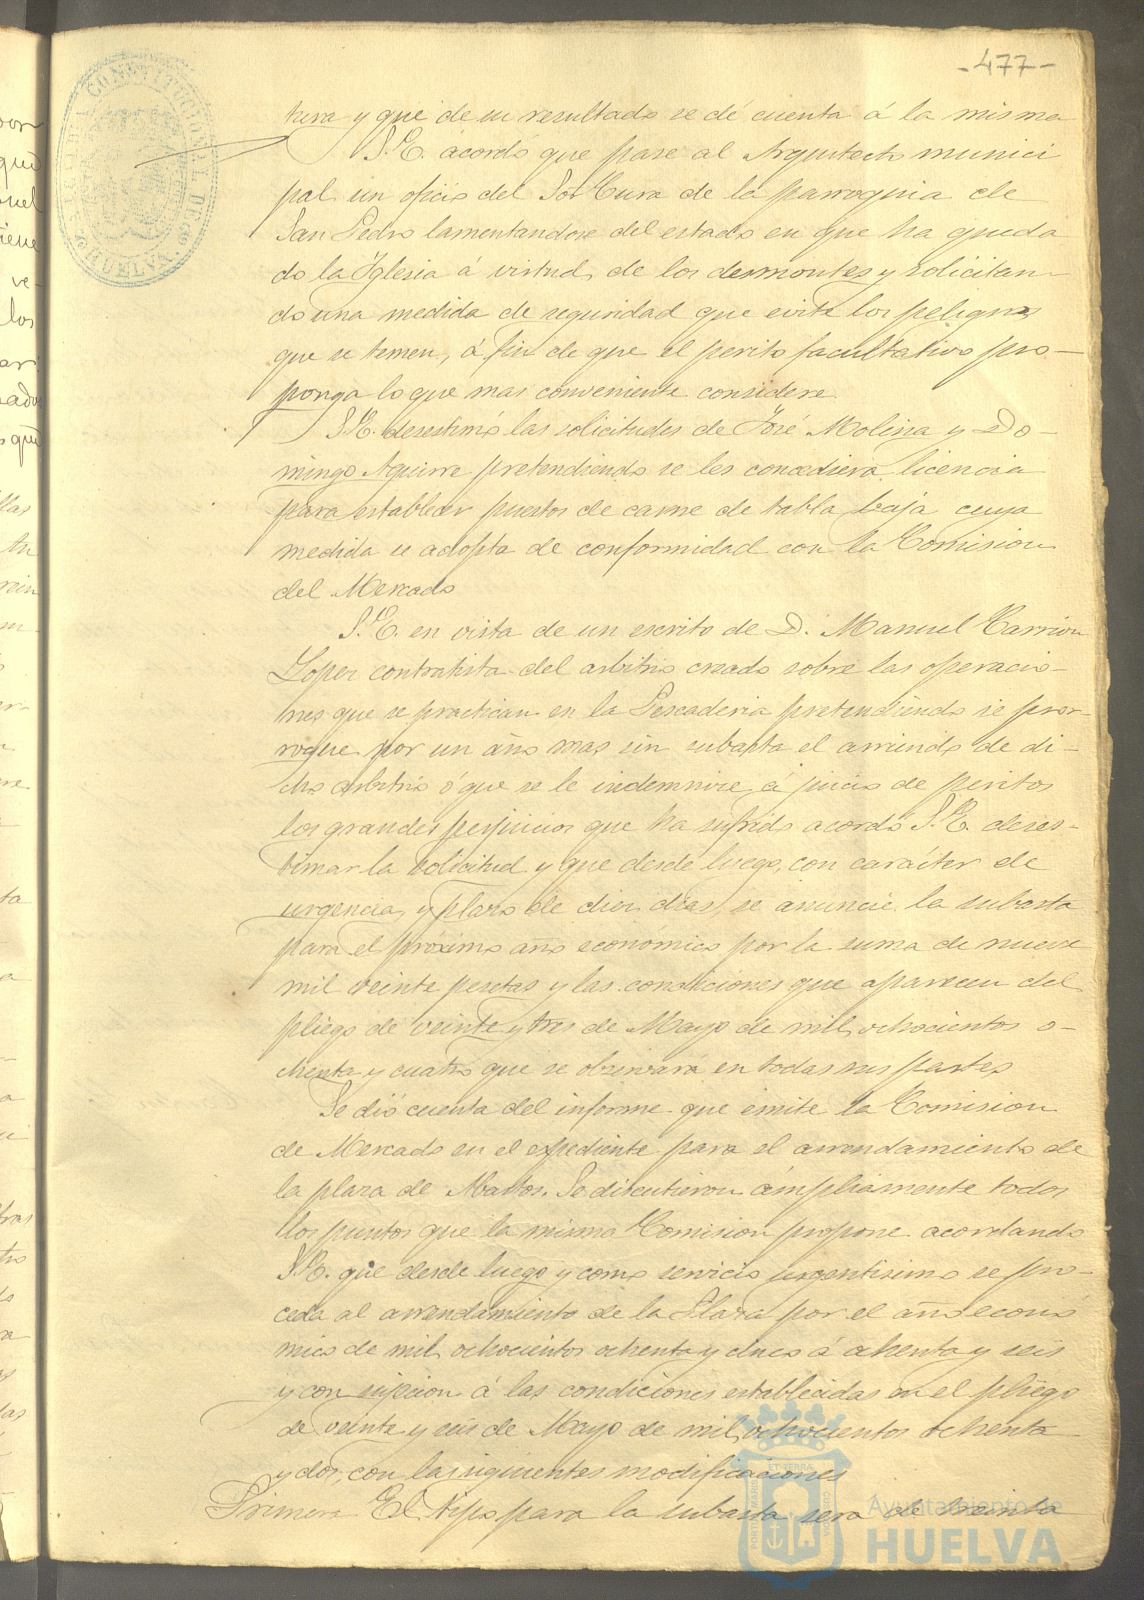 -477-
tura y que de su resultado se dé cuenta á la misma
S.E. acordó que pase al Arquitecto munici
pal un oficio del Sor Cura de la parroquia de
San Pedro lamentandose del estado en que ha queda
do la Iglesia á virtud de los desmontes y solicitan-
do una medida de seguridad que evite los peligros
que se temen, á fin de que el perito facultativo pro-
ponga lo que mas conveniente considere
S.E. desestimó las solicitudes de José Molina y Do-
mingo Aguirre pretendiendo se les concediera licencia
para establecer puestos de carne de tabla baja cuya
medida se adopta de conformidad con la Comision
del Mercado
S.E. en vista de un escrito de D. Manuel Carrion
Lopez contratista del arbitrio creado sobre las operacio-
nes que se practican en la Pescaderia pretendiendo se pror-
rogue por un año mas sin subasta el arriendo de di-
cho arbitrio ó que se le indemnice á juicio de peritos
los grandes perjuicios que ha sufrido acordó S.E. deses-
timar la solicitud y que desde luego, con carácter de
urgencia, y plazo de diez dias, se anuncie la subasta
para el próximo año económico por la suma de nueve
mil veinte pesetas y las condiciones que aparecen del
pliego de veinte y tres de Mayo de mil ochocientos o-
chenta y cuatro que se observará en todas sus partes
Se dió cuenta del informe que emite la Comision
de Mercado en el expediente para el arrendamiento de
la plaza de Abastos. Se discutieron ámpliamente todos
los puntos que la misma Comision propone acordando
S.E. que desde luego y como servicio urgentisimo se pro-
ceda al arrendamiento de la Plaza por el año econó
mico de mil ochocientos ochenta y cinco á ochenta y seis
y con sujecion á las condiciones establecidas en el pliego
de veinte y seis de Mayo de mil ochocientos ochenta
y dos, con las siguientes modificaciones
Primera El tipo para la subasta será de treinta
CONSTITUCIONAL DE
HUELVA
Ayuntamiento de
HUELVA